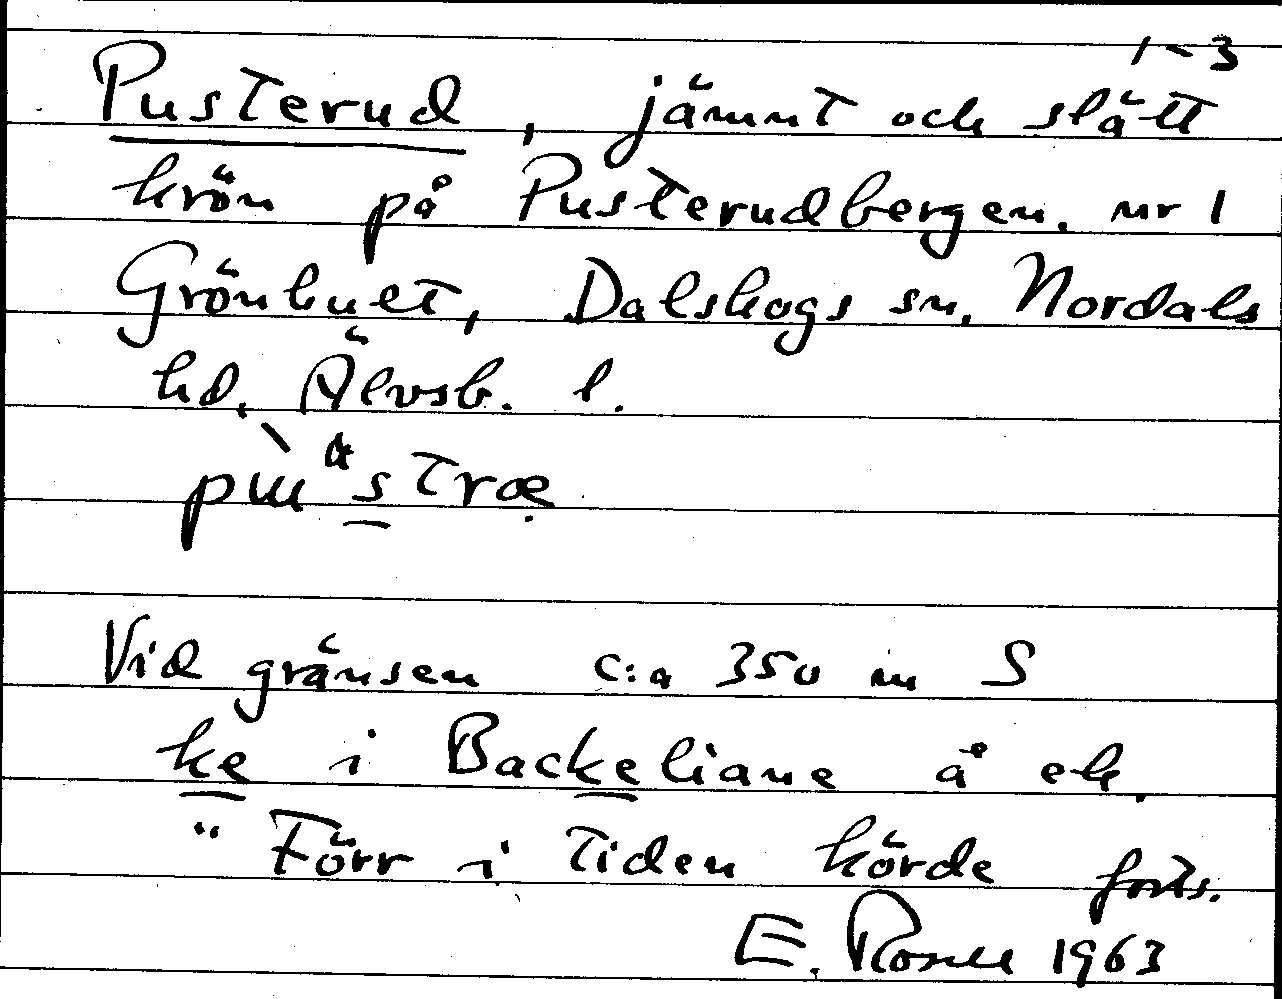 1-3
Pusterud, jämnt och slätt
krön på Pusterudbergen. nr 1
Grönhuet, Dalskogs sn, Nordals
hd, Älvsb. l.
Vid gränsen c:a 350 m S
ke i Backeliane å ek.
"Förr i tiden hörde forts.
E. Rosell 1963